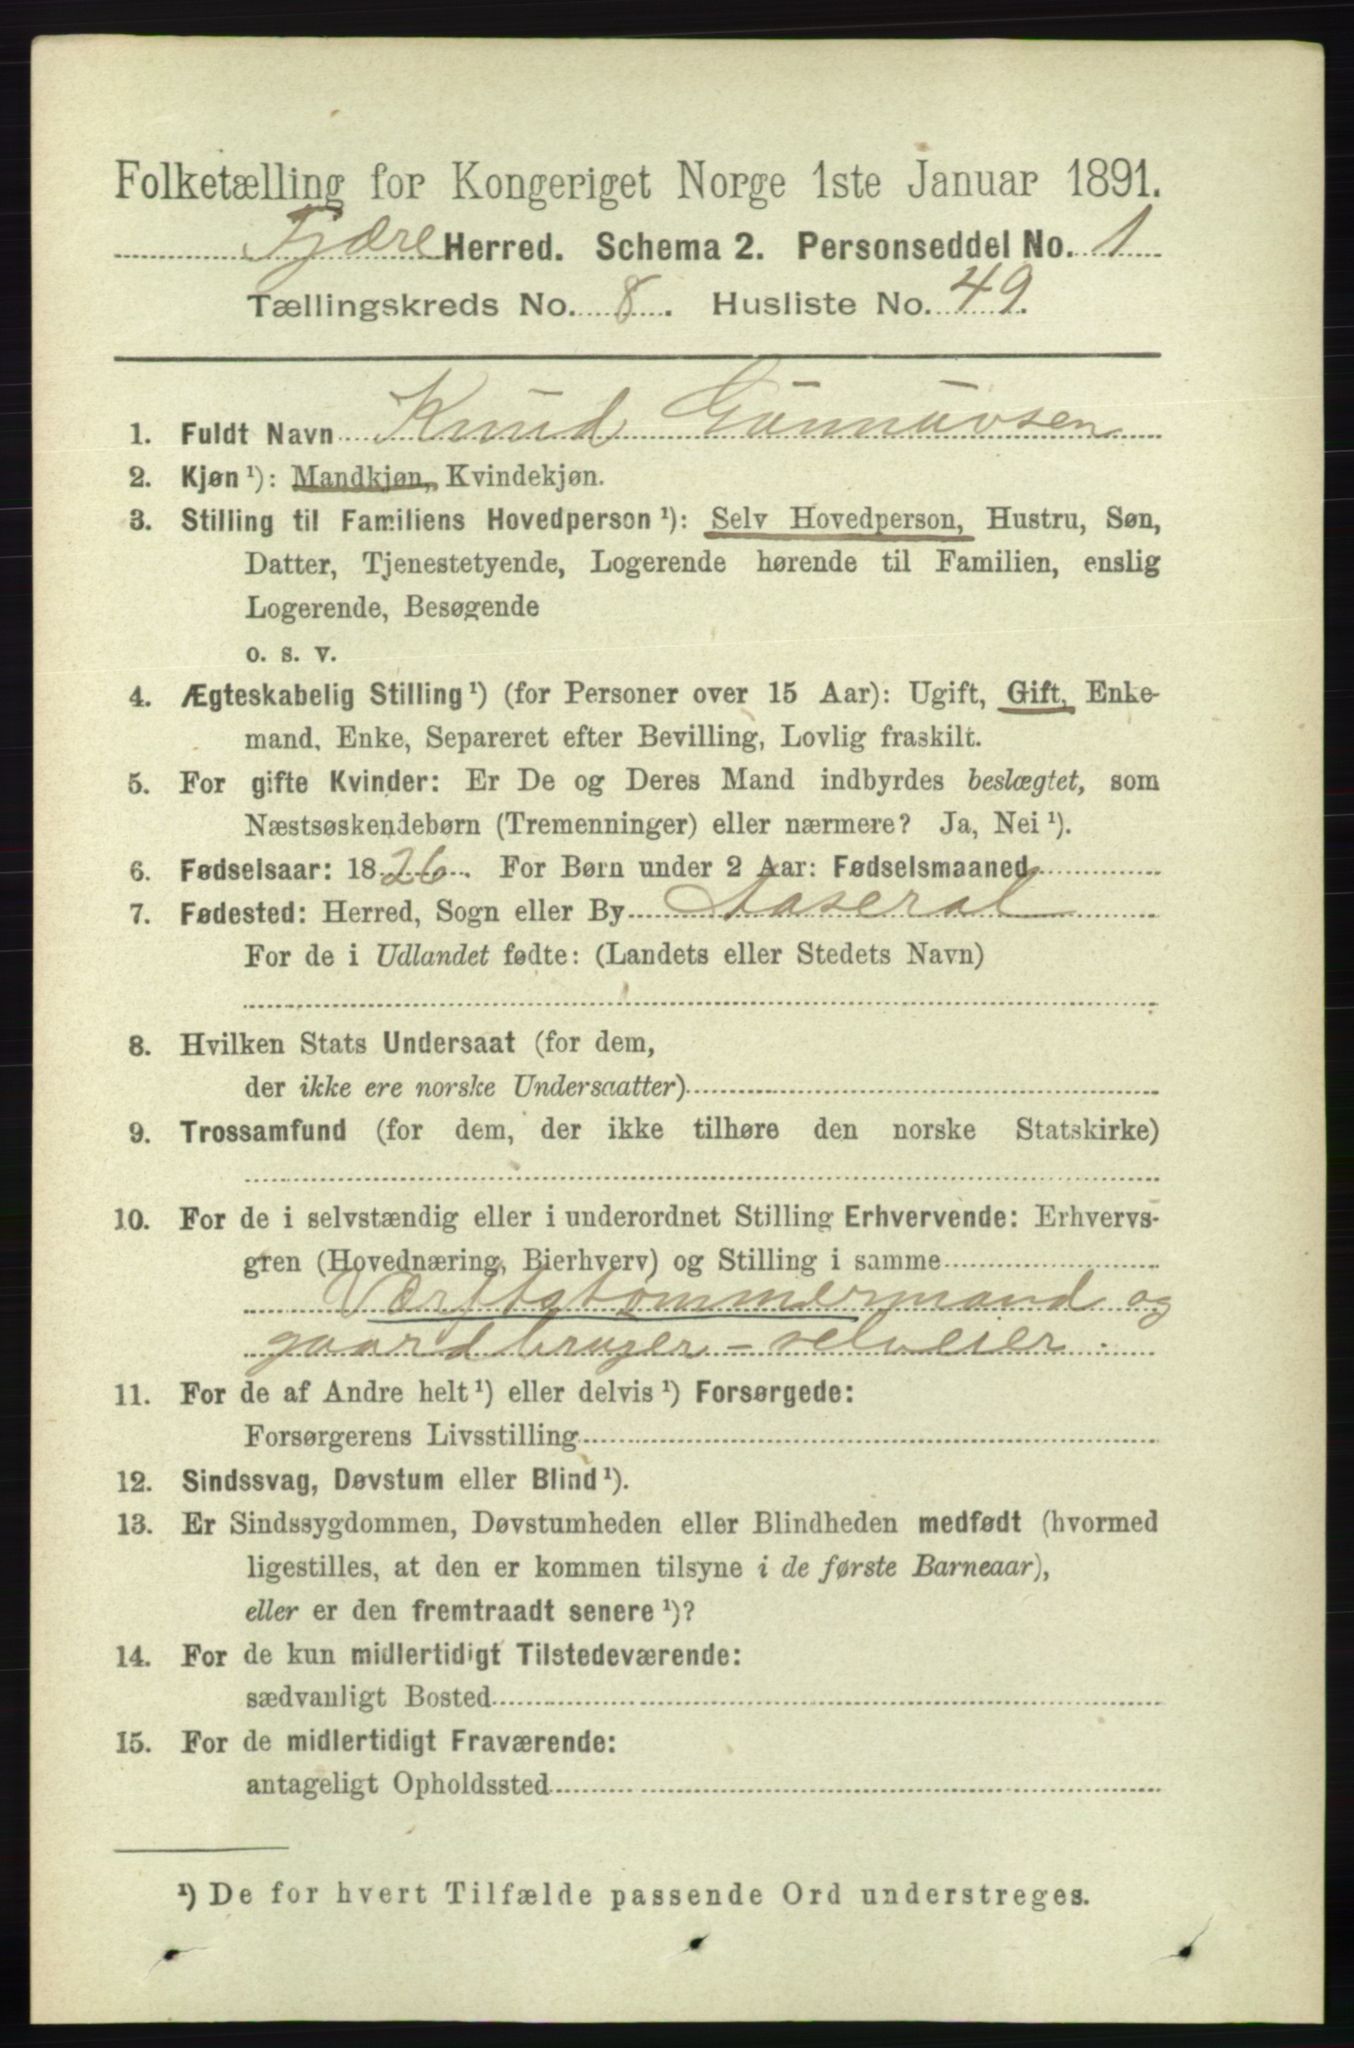 Folketælling for Kongeriget Norge 1ste Januar 1891.
Fjære Herred. Schema 2. Personseddel No. 1
Tællingskreds No. 8. Husliste No. 49.
1. Fuldt Navn Knud Gunnuvsen
2. Kjøn ¹): Mandkjøn, Kvindekjøn.
3. Stilling til Familiens Hovedperson ¹): Selv Hovedperson, Hustru, Søn,
Datter, Tjenestetyende, Logerende hørende til Familien, enslig
Logerende, Besøgende
o. s. v.
4. Ægteskabelig Stilling ¹) (for Personer over 15 Aar): Ugift, Gift, Enke-
mand, Enke, Separeret efter Bevilling, Lovlig fraskilt.
5. For gifte Kvinder: Er De og Deres Mand indbyrdes beslægtet, som
Næstsøskendebørn (Tremenninger) eller nærmere? Ja, Nei ¹).
6. Fødselsaar: 1826. For Børn under 2 Aar: Fødselsmaaned
7. Fødested: Herred, Sogn eller By Aaseral
For de i Udlandet fødte: (Landets eller Stedets Navn)
8. Hvilken Stats Undersaat (for dem,
der ikke ere norske Undersaatter)
9. Trossamfund (for dem, der ikke tilhøre den norske Statskirke)
10. For de i selvstændig eller i underordnet Stilling Erhvervende: Erhvervs-
gren (Hovednæring, Bierhverv) og Stilling i samme
Værftstømmermand og
gaardbruger - selveier.
11. For de af Andre helt ¹) eller delvis ¹) Forsørgede:
Forsørgerens Livsstilling
12. Sindssvag, Døvstum eller Blind ¹).
13. Er Sindssygdommen, Døvstumheden eller Blindheden medfødt (hvormed
ligestilles, at den er kommen tilsyne i de første Barneaar),
eller er den fremtraadt senere ¹)?
14. For de kun midlertidigt Tilstedeværende:
sædvanligt Bosted
15. For de midlertidigt Fraværende:
antageligt Opholdssted
¹) De for hvert Tilfælde passende Ord understreges.